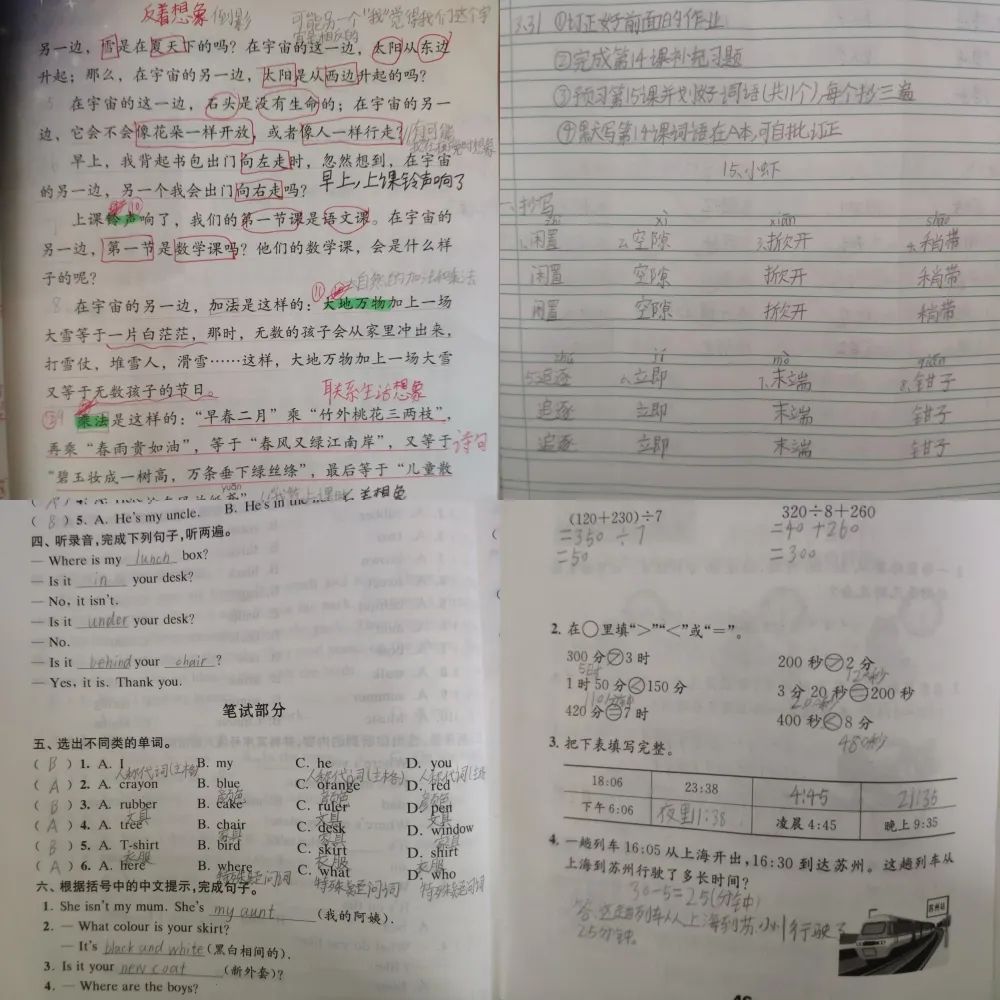 反着想象 倒影
可能另一个“我”觉得我们这个宇宙是相反的
另一边，雪是在夏天下的吗？在宇宙的这一边，太阳从东边
升起；那么，在宇宙的另一边，太阳是从西边升起的吗？
在宇宙的这一边，石头是没有生命的；在宇宙的另一
边，它会不会像花朵一样开放，或者像人一样行走？
早上，我背起书包出门向左走时，忽然想到，在宇宙
的另一边，另一个我会出门向右走吗？
早上，上课铃声响了
上课铃声响了，我们的第一节课是语文课。在宇宙的
另一边，第一节是数学课吗？他们的数学课，会是什么样
子的呢？
大自然的加法和乘法
8 在宇宙的另一边，加法是这样的：大地万物加上一场
大雪等于一片白茫茫，那时，无数的孩子会从家里冲出来，
打雪仗，堆雪人，滑雪……这样，大地万物加上一场大雪
又等于无数孩子的节日。
联系生活想象
9 乘法是这样的：“早春二月”乘“竹外桃花三两枝”，
再乘“春雨贵如油”，等于“春风又绿江南岸”，又等于
诗句
“碧玉妆成一树高，万条垂下绿丝绦”，最后等于“儿童散
yuān
3.31 ①订正好前面的作业
②完成第14课补充习题
③预习第15课并划好词语(共11个),每个抄三遍
④默写第14课词语在A本,可自批订正
15、小虾
一、抄写
xì xiān shāo
1.闲置 2.空隙 3.掀开 4.稍带
闲置 空隙 掀开 稍带
闲置 空隙 掀开 稍带
zhú jí mò qián
5.追逐 6.立即 7.末端 8.钳子
追逐 立即 末端 钳子
追逐 立即 末端 钳子
( B ) 5. A. He's my uncle. B. He's in the
四、听录音,完成下列句子,听两遍。
— Where is my lunch box?
— Is it in your desk?
— No, it isn't.
— Is it under your desk?
— No.
— Is it behind your chair?
— Yes, it is. Thank you.
笔试部分
五、选出不同类的单词。
( B ) 1. A. I B. my C. he D. you
人称代词(主格) 人称代词(主格) 人称代词(主格
( A ) 2. A. crayon B. blue C. orange D. red
颜色 颜色 颜色
( B ) 3. A. rubber B. cake C. ruler D. pen
文具 文具 文具
( A ) 4. A. tree B. chair C. desk D. window
家具 家具 家具
( B ) 5. A. T-shirt B. bird C. skirt D. shirt
衣服 衣服 衣服
( A ) 6. A. here B. where C. what D. who
特殊疑问词 特殊疑问词 特殊疑问词
六、根据括号中的中文提示,完成句子。
1. She isn't my mum. She's my aunt (我的阿姨).
2. — What colour is your skirt?
— It's black and white (黑白相间的).
3. Is it your new coat (新外套)?
4. — Where are the boys?
(120+230)÷7 320÷8+260
=350÷7 =40+260
=50 =300
2. 在○里填“>”“<”或“=”。
300分>3时 200秒>2分
5时 120秒
1时50分<150分 3分20秒=200秒
110分钟 200秒
420分=7时 400秒<8分
480秒
3. 把下表填写完整。
18:06 23:38 4:45 21:35
下午6:06 夜里11:38 凌晨4:45 晚上9:35
4. 一趟列车16:05从上海开出,16:30到达苏州。这趟列车从
上海到苏州行驶了多长时间?
30-5=25(分钟)
答:这趟列车从上海到苏州行驶了
25分钟。
苏州站